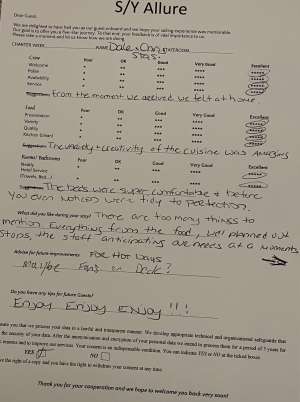 S/Y Allure
Dear Guest,
We are delighted to have had you as our guest onboard and we hope your sailing experience was memorable.
Our goal is to offer you a five-star journey. To that end, your feedback is of vital importance to us.
Please take a moment and let us know how we are doing
CHARTER WEEK NAME Dale & Chris STATEROOM
Crew Poor OK Good Very Good Excellent
Welcome * ** *** **** *****
Polite * ** *** **** *****
Availability * ** *** **** *****
Service * ** *** **** *****
Suggestions: From the moment we arrived we felt at home.
Food Poor OK Good Very Good Excellent
Presentation * ** *** **** *****
Variety * ** *** **** *****
Quality * ** *** **** *****
Kitchen (clean) * ** *** **** *****
Suggestions: The variety & creativity of the cuisine was Amazing
Rooms/ Bathrooms Poor OK Good Very Good Excellent
Neatly * ** *** **** *****
Hotel Service
(Towels, Bed...) * ** *** **** *****
Suggestions: The beds were super comfortable & before
you even noticed were tidy to perfection.
What did you like during your stay? There are too many things to
mention. Everything from the food, well planned out
stops, the staff anticipating are needs at a moments
Advice for future improvements: For Hot Days
Maybe Fans on Deck?
Do you have any tips for future Guests?
Enjoy Enjoy Enjoy!!!
that we process your data in a lawful and transparent manner. We develop appropriate technical and organizational safeguards that
the security of your data. After the anonymization and encryption of your personal data we intend to process them for a period of 5 years for
reasons and to improve our services. Your consent is an indispensable condition. You can indicate YES or NO at the ticked boxes.
YES NO
the right of a copy and you have the right to withdraw your consent at any time.
Thank you for your cooperation and we hope to welcome you back very soon!